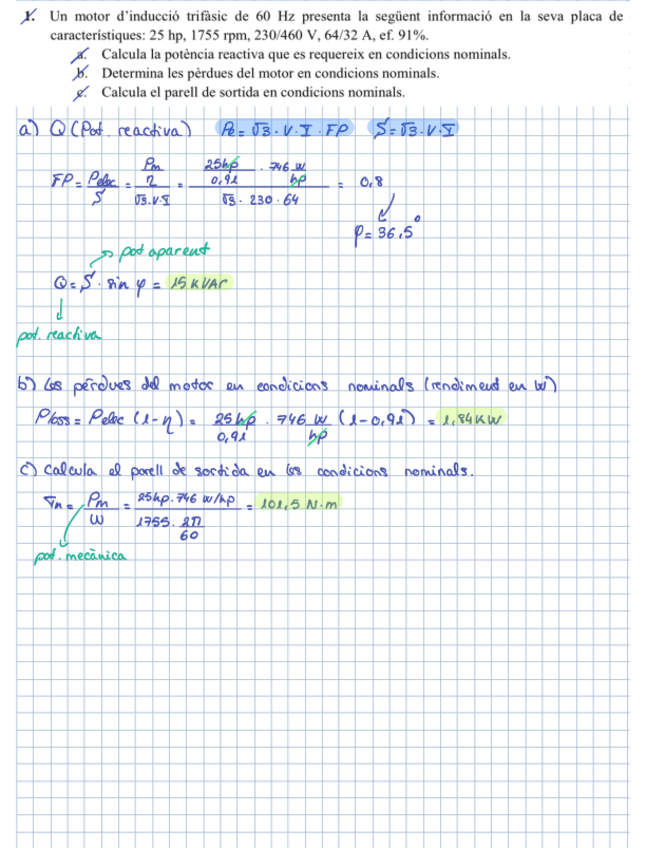 1. Un motor d'inducció trifàsic de 60 Hz presenta la següent informació en la seva placa de
característiques: 25 hp, 1755 rpm, 230/460 V, 64/32 A, ef. 91%.
a. Calcula la potència reactiva que es requereix en condicions nominals.
b. Determina les pèrdues del motor en condicions nominals.
c. Calcula el parell de sortida en condicions nominals.
a) Q (Pot. reactiva) Pe = √3 · V · I · FP S = √3 · V · I
FP = Pelec/S = (Pm/η)/(√3 · V · I) = (25hp/0,91 · 746 W/hp)/(√3 · 230 · 64) = 0,8
φ = 36,5°
pot aparent
Q = S · sin φ = 15 KVAr
pot. reactiva
b) Les pèrdues del motor en condicions nominals (rendiment en W)
Ploss = Pelec (1-η) = 25hp/0,91 · 746 W/hp (1-0,91) = 1,84KW
c) Calcula el parell de sortida en les condicions nominals.
Tn = Pm/ω = (25hp · 746 W/hp)/(1755 · 2π/60) = 101,5 N·m
pot. mecànica